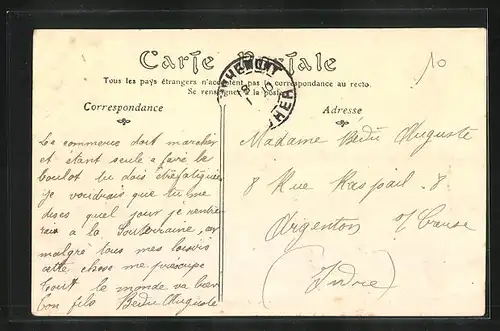 10
Carte Postale
Tous les pays étrangers n'acceptent pas la correspondance au recto.
Se renseigner à la poste
Correspondance
Adresse
Le commerce doit marcher
et étant seule a faire le
boulot tu dois être fatiguée
je voudrais que tu me
dises quel jour je rentre
a la Souterraine, car
malgré tous mes loisirs
cette chose me préocupe
tout le monde va bien
ton fils Bédu Auguste
Madame Bédu Auguste
8 Rue Raspail 8
Argenton s/ Creuse
(Indre)